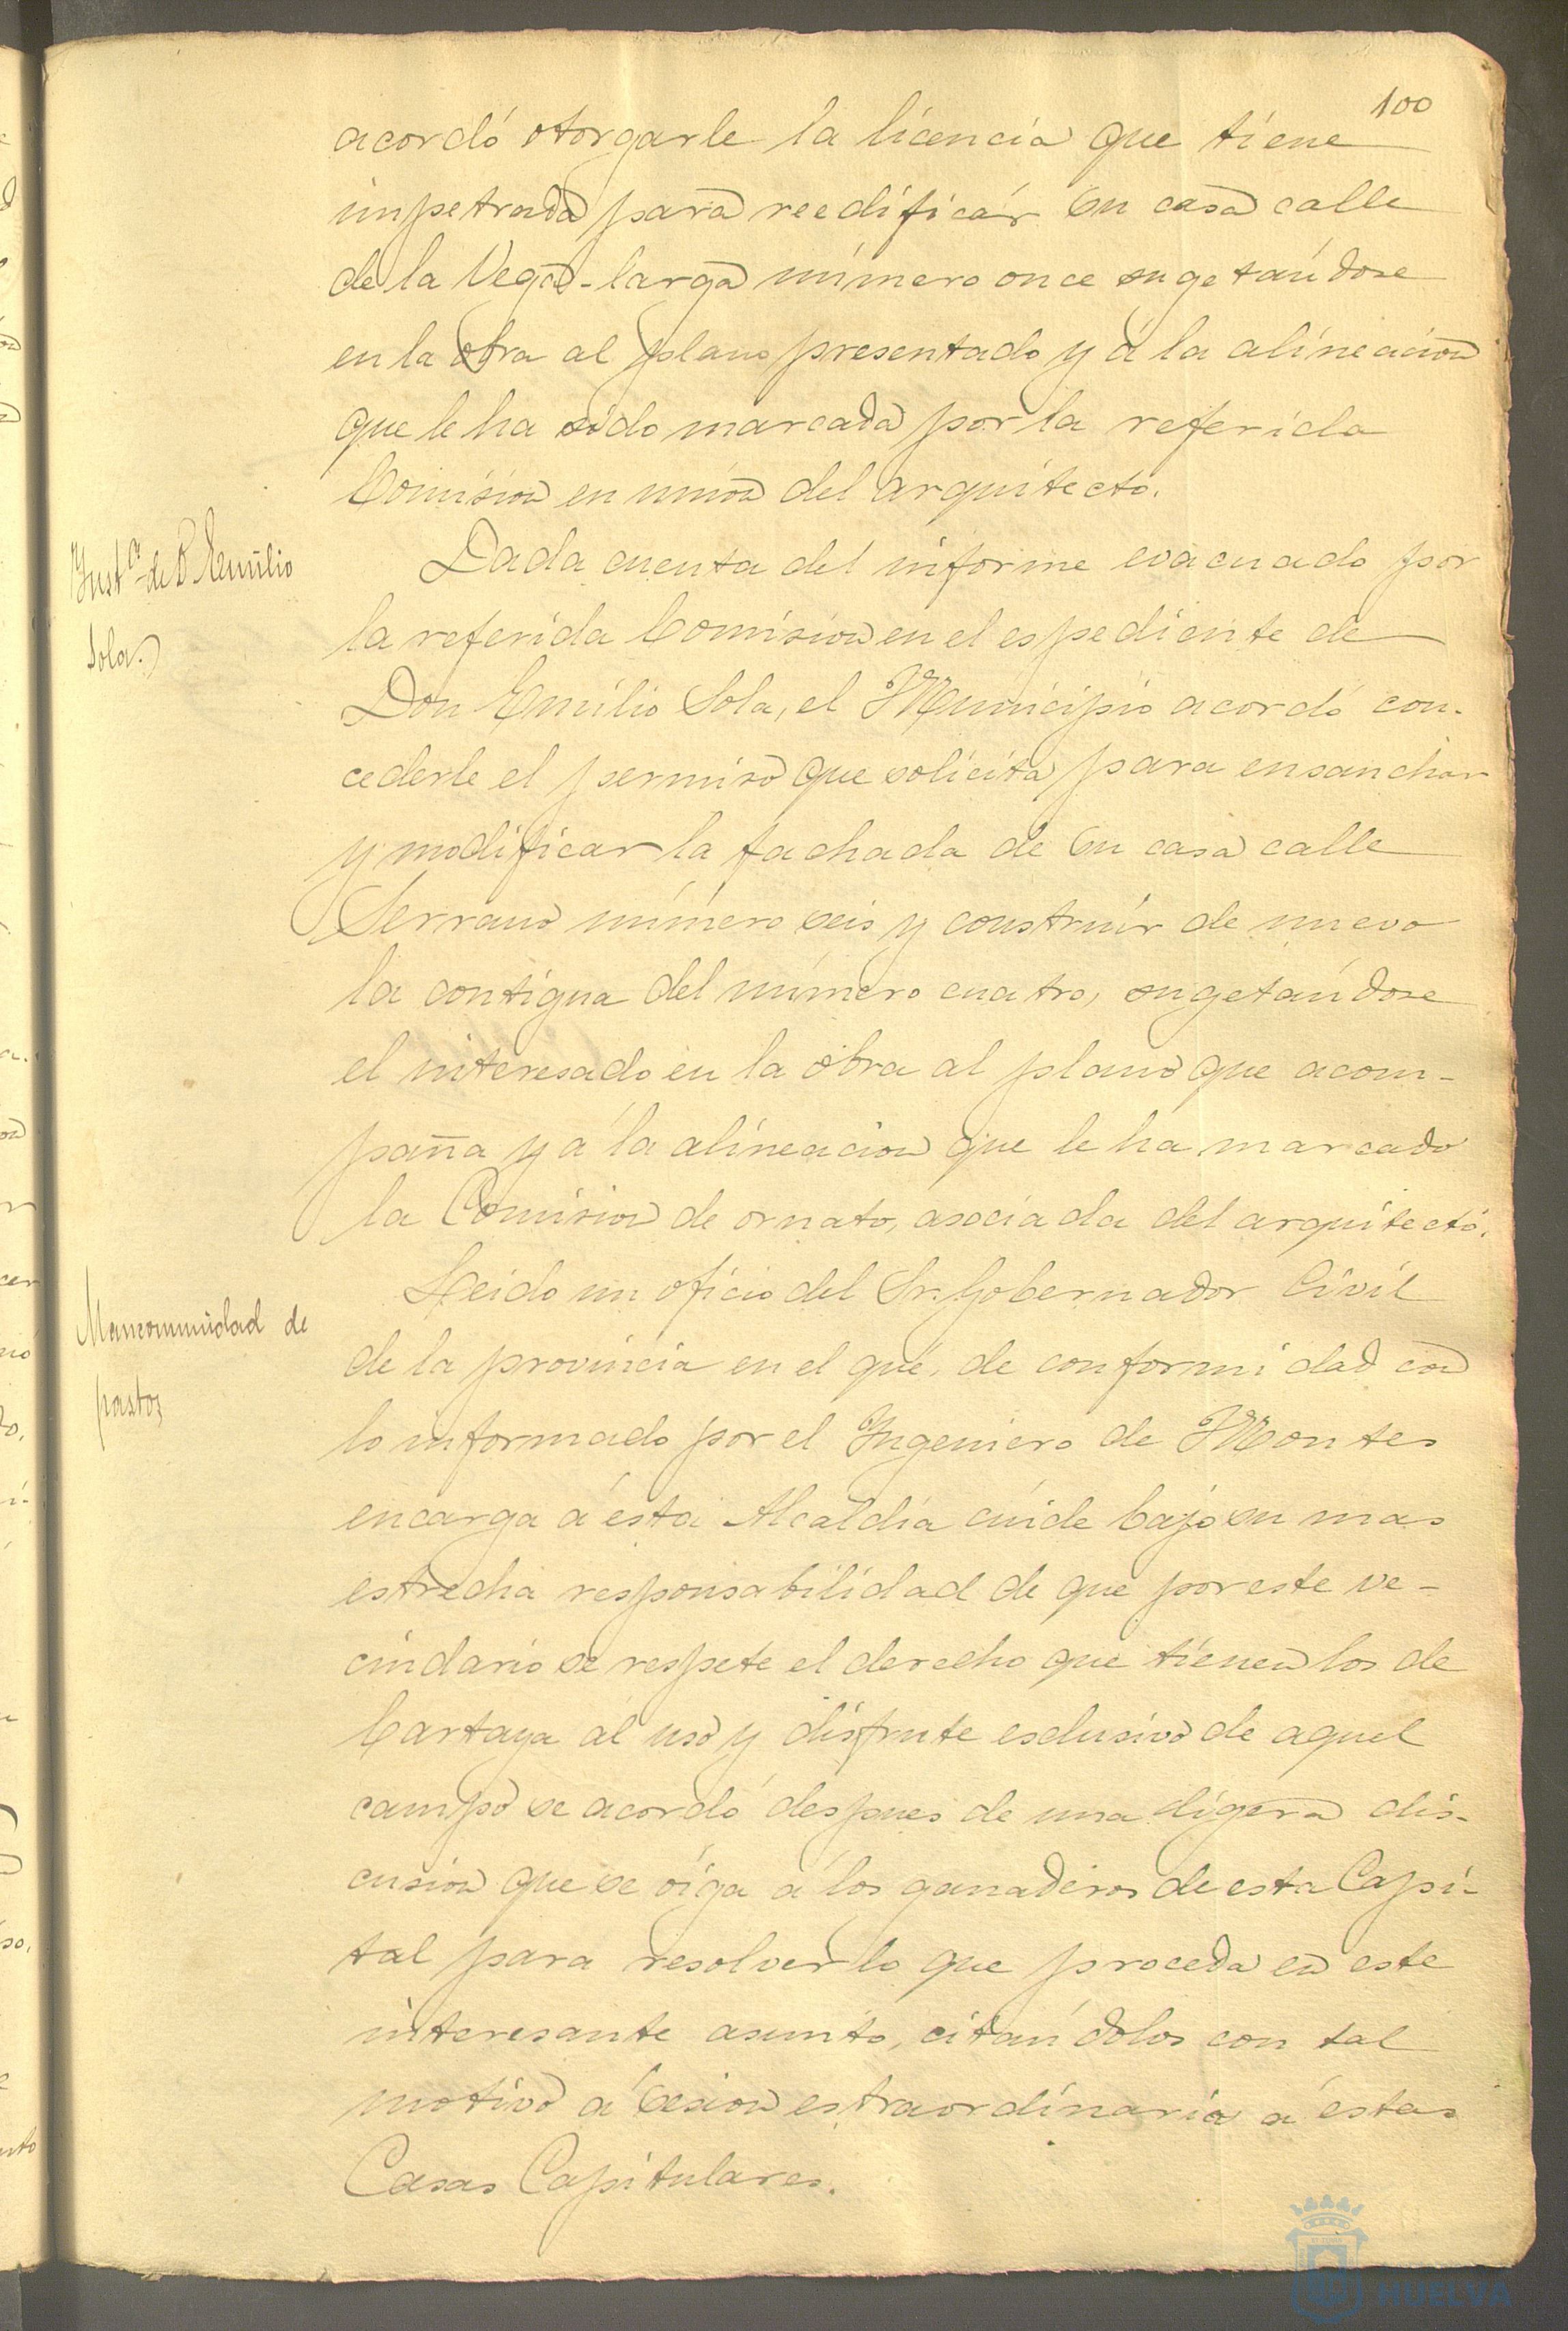 100
acordó otorgarle la licencia que tiene
impetrada para reedificar su casa calle
de la Vega-larga número once sugetándose
en la obra al plano presentado y á la alineacion
que le ha sido marcada por la referida
Comision en union del arquitecto.
Inst.ª de D. Emilio
Sola.
Dada cuenta del informe evacuado por
la referida Comision en el espediente de
Don Emilio Sola, el Municipio acordó con-
cederle el permiso que solicita para ensanchar
y modificar la fachada de su casa calle
Serrano número seis y construir de nuevo
la contigua del número cuatro, sugetándose
el interesado en la obra al plano que acom-
paña y á la alineacion que le ha marcado
la Comision de ornato, asociada del arquitecto.
Mancomunidad de
pastos
Leido un oficio del Sr. Gobernador Civil
de la provincia en el que, de conformidad con
lo informado por el Ingeniero de Montes
encarga á esta Alcaldía cuide bajo su mas
estrecha responsabilidad de que por este ve-
cindario se respete el derecho que tienen los de
Cartaya al uso y disfrute esclusivo de aquel
campo se acordó despues de una ligera dis-
cusion que se oiga á los ganaderos de esta Capi-
tal para resolver lo que proceda en este
interesante asunto, citándolos con tal
motivo á sesion estraordinaria á estas
Casas Capitulares.
HUELVA